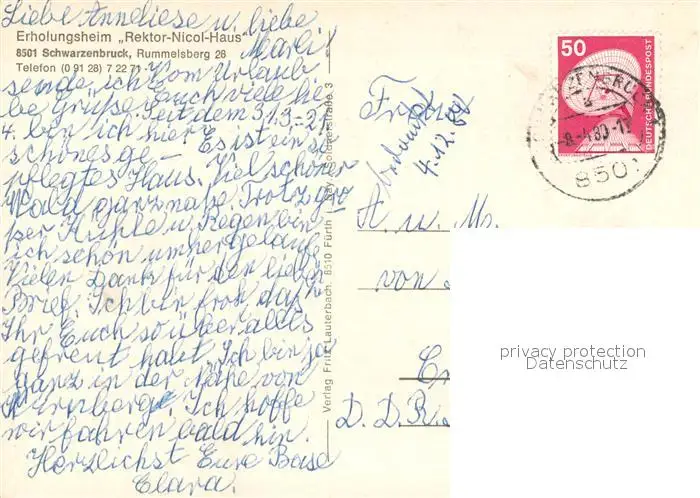 Liebe Anneliese u. liebe
Erholungsheim „Rektor-Nicol-Haus"
8501 Schwarzenbruck, Rummelsberg 26
Telefon (0 91 28) 7 22 71
Marli!
sende ich vom Urlaub
Euch viele lie-
be Grüße. Seit dem 31.3=21.
4. bin ich hier. Es ist ein
schönes ge-
pflegtes Haus. Viel schöner
Wald ganz nahe. Trotz gro
ßer Kühle u. Regen bin
ich schön umhergelauf.
Vielen Dank für den lieben
Brief. Ich bin froh daß
Ihr Euch so über alles
gefreut habt. Ich bin ja
ganz in der Nähe von
Nürnberg. Ich hoffe
wir fahren bald hin.
Herzlichst Eure Base
Clara.
Verlag Fritz Lauterbach, 8510 Fürth i. Bay.
50
DEUTSCHE BUNDESPOST
-8.-4.80-17
8501
4.12.84
A. u. Ms.
von
D.D.R.
privacy protection
Datenschutz